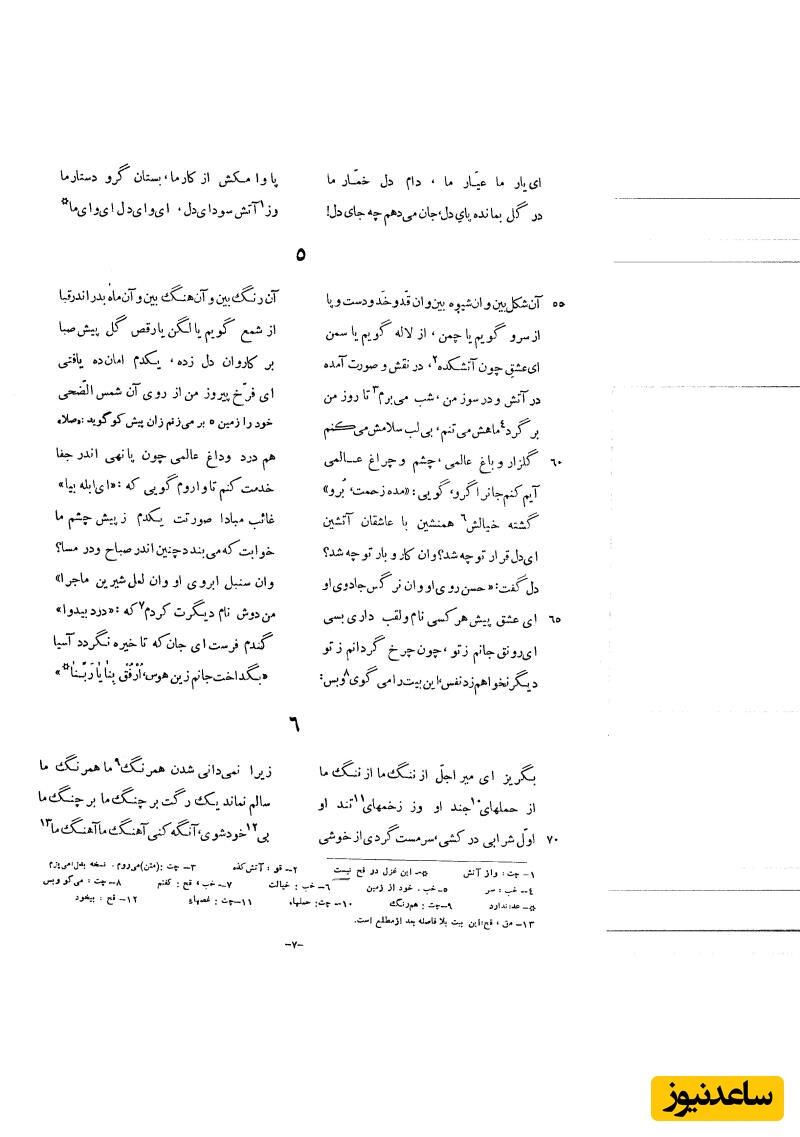 ای یار ما عیّار ما ، دام دل خمّار ما پا وا مکش از کار ما، بستان گرو دستار ما
در گل بمانده پای دل، جان می‌دهم چه جای دل! وز۱ آتش سودای دل، ای وای دل ای وای ما*
۵
۵۵ آن شکل بین وان شیوه بین وان قدّ و خدّ و دست و پا آن رنگ بین و آن هنگ بین و آن ماه بدر اندر قبا
از سرو گویم یا چمن ، از لاله گویم یا سمن از شمع گویم یا لگن یا رقص گل پیش صبا
ای عشق چون آتشکده۲، در نقش و صورت آمده بر کاروان دل زده ، یکدم امان ده یا فتی
در آتش و در سوز من ، شب می‌برم۳ تا روز من ای فرّخ پیروز من از روی آن شمس الضّحی
بر گرد۴ ماهش می‌تنم، بی‌لب سلامش می‌کنم خود را زمین ۵ بر می‌زنم زان پیش کو گوید: «صلا»
۶۰ گلزار و باغ عالمی ، چشم و چراغ عالمی هم درد وداغ عالمی چون پا نهی اندر جفا
آیم کنم جان را گرو، گویی: «مده زحمت، برو» خدمت کنم تا واروم گویی که : «ای ابله بیا»
گشته خیالش۶ همنشین با عاشقان آتشین غائب مبادا صورتت یکدم ز پیش چشم ما
ای دل قرار تو چه شد؟ وان کار و بار تو چه شد؟ خوابت که می‌بندد چنین اندر صباح و در مسا؟
دل گفت: «حسن روی او وان نرگس جادوی او وان سنبل ابروی او وان لعل شیرین ماجرا»
۶۵ ای عشق پیش هر کسی نام و لقب داری بسی من دوش نام دیگرت کردم۷ که : «درد بیدوا»
ای رونق جانم ز تو ، چون چرخ گردانم ز تو گندم فرست ای جان که تا خیره نگردد آسیا
دیگر نخواهم زد نفس، این بیت را می گوی۸ و بس: «بگداخت جانم زین هوس، اُرْفُقْ بِنا یا رَبَّنا*»
۶
بگریز ای میر اجلّ از ننگ ما از ننگ ما زیرا نمی‌دانی شدن همرنگ۹ ما همرنگ ما
از حملهای۱۰ جند او وز زخمهای۱۱ تند او سالم نماند یک رگت بر چنگ ما بر چنگ ما
۷۰ اوّل شرابی در کشی، سرمست گردی از خوشی بی۱۲ خود شوی، آنگه کنی آهنگ ما آهنگ ما۱۳
۱- چت : واز آتش *- این غزل در قح نیست ۲- قو : آتش‌کده ۳- چت :(متن)می‌روم . نسخه بدل:می‌پزم
۴- خب : سر ۵- خب . خود از زمین ۶- خب : خیالت ۷- خب ، قح : گفتم ۸- چت : می‌گو و بس
*- عد:ندارد ۹- چت : هم‌رنگ ۱۰- چت: حملهاء ۱۱- چت : غصهاء ۱۲- قح : بیخود
۱۳- مق ، قح:این بیت بلا فاصله بعد از مطلع است.
-۷-
ساعدنیوز